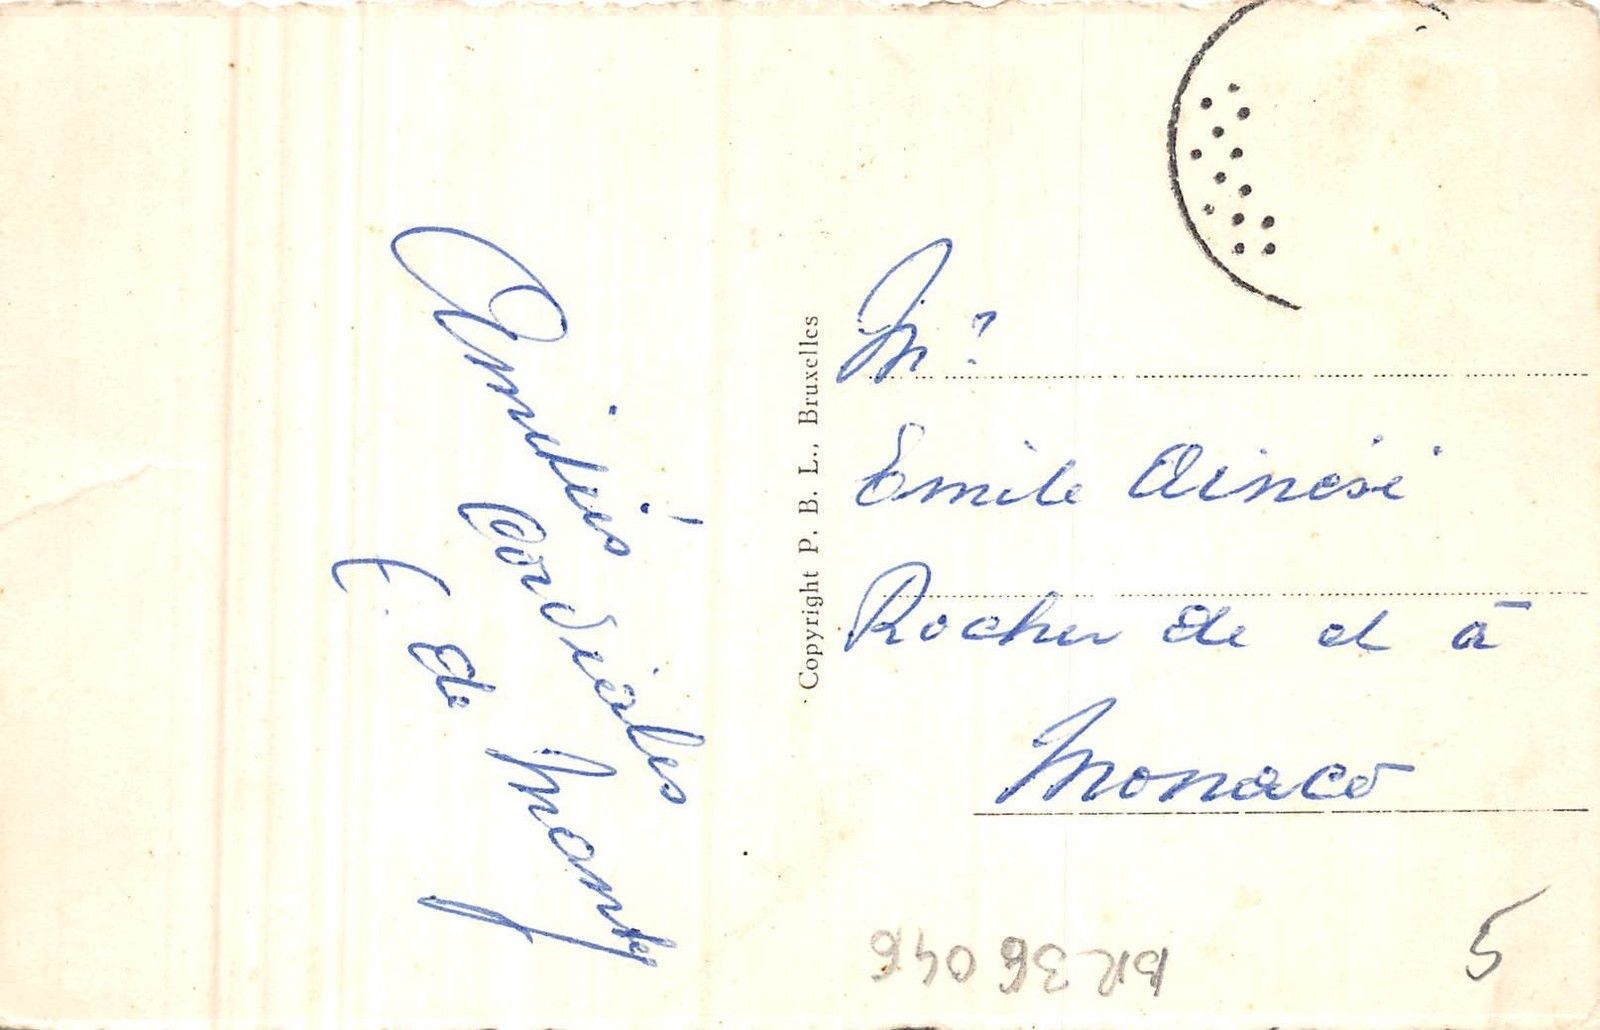 Amitiés
Cordiales !
E. de
Copyright P. B. L., Bruxelles
Mr
Emile
Rocher de et à
Monaco
5
BR 36 046